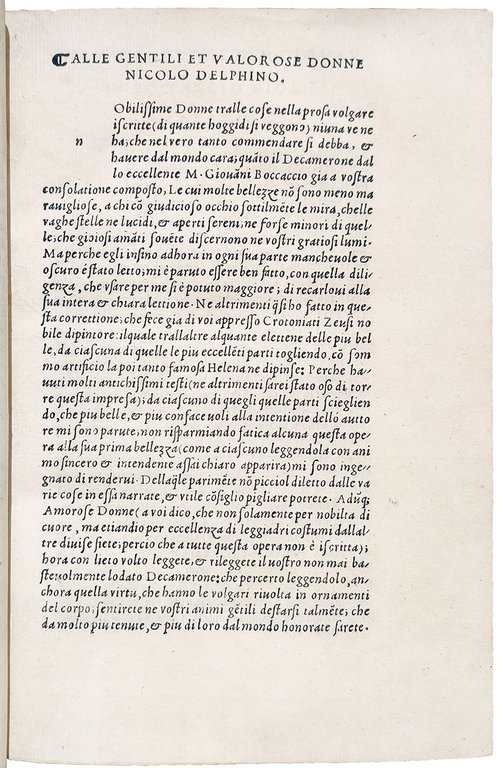 ⸿ALLE GENTILI ET VALOROSE DONNE
NICOLO DELPHINO.
Obilissime Donne tralle cose nella prosa volgare
iscritte (di quante hoggidi si veggono) niuna ve ne
n ha; che nel vero tanto commendare si debba, &
hauere dal mondo cara; quãto il Decamerone dal
lo eccellente M. Giouãni Boccaccio gia a vostra
consolatione composto, Le cui molte bellezze nõ sono meno ma
rauigliose, a chi cõ giudicioso occhio sottilmẽte le mira, chelle
vaghe stelle ne lucidi, & aperti sereni; ne forse minori di quel=
le; che gioiosi amãti souẽte discernono ne vostri gratiosi lumi.
Ma perche egli insino adhora in ogni sua parte mancheuole &
oscuro é stato letto; mi é paruto essere ben fatto, con quella dili=
genza, che vsare per me si è potuto maggiore; di recarloui alla
sua intera & chiara lettione. Ne altrimenti q̃si ho fatto in que=
sta correttione; che fece gia di voi appresso Crotoniati Zeusi no
bile dipintore: ilquale trallaltre alquante elettene delle piu bel
le, da ciascuna di quelle le piu eccellẽti parti togliendo, cõ som
mo artificio la poi tanto famosa Helena ne dipinse: Perche ha=
uuti molti antichissimi testi (ne altrimenti sarei stato oso di tor=
re questa impresa); da ciascuno di quegli quelle parti sciegliен
do, che piu belle, & piu confaceuoli alla intentione dello autto
re mi sono parute; non risparmiando fatica alcuna questa ope=
ra alla sua prima bellezza (come a ciascuno leggendola con ani
mo sincero & intendente assai chiaro apparira) mi sono inge=
gnato di renderui. Dellaq̃le parimẽte nõ picciol diletto dalle va
rie cose in essa narrate, & vtile cõsiglio pigliare potrete. Adũq;
Amorose Donne (a voi dico, che non solamente per nobilta di
cuore, ma etiandio per eccellenza di leggiadri costumi dallal=
tre diuise siete; percio che a tutte questa opera non è iscritta);
hora con lieto volto leggete, & rileggete il vostro non mai ba=
steuolmente lodato Decamerone: che percerto leggendolo, an=
chora quella virtu, che hanno le volgari riuolta in ornamenti
del corpo; sentirete ne vostri animi gẽtili destarsi talmẽte; che
da molto piu tenute, & piu di loro dal mondo honorate sarete.